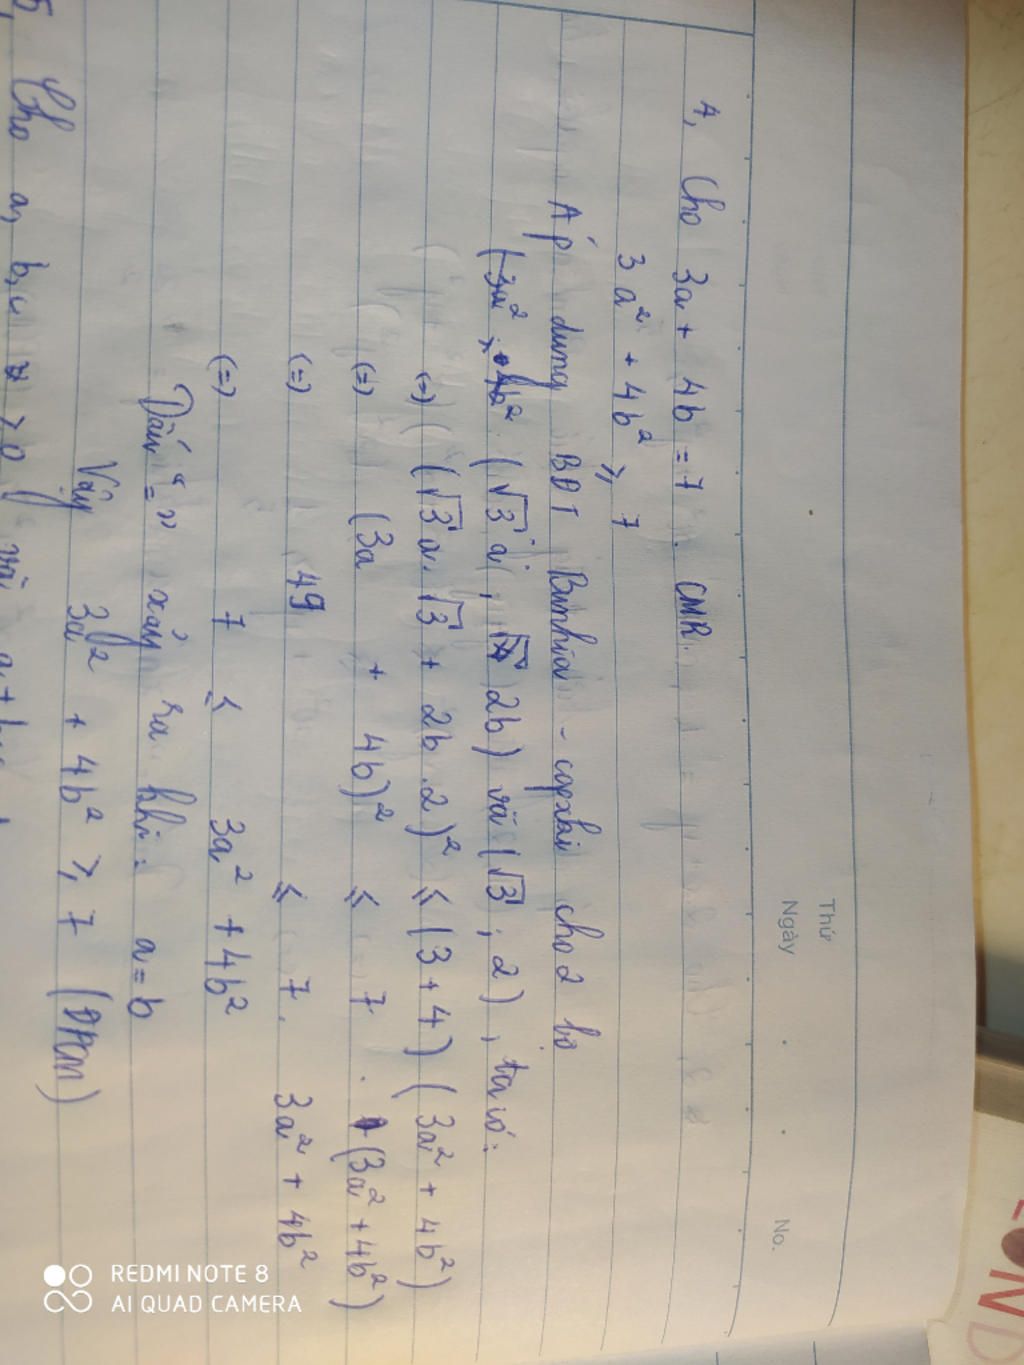 Thứ
Ngày
No.
4, Cho 3a + 4b = 7. CMR
3a² + 4b² ≥ 7
Áp dụng BĐT Bunhia - copxki cho 2 bộ
(√3 a ; 2b) và (√3 ; 2), ta có:
(=) (√3 a. √3 + 2b . 2)² ≤ (3 + 4) (3a² + 4b²)
(=) (3a + 4b)² ≤ 7 . (3a² + 4b²)
(=) 49 ≤ 7. 3a² + 4b²
(=) 7 ≤ 3a² + 4b²
Dấu "=" xảy ra khi: a = b
Vậy 3a² + 4b² ≥ 7 (ĐPCM)
5, Cho a, b, c > 0 và
REDMI NOTE 8
AI QUAD CAMERA
LOND